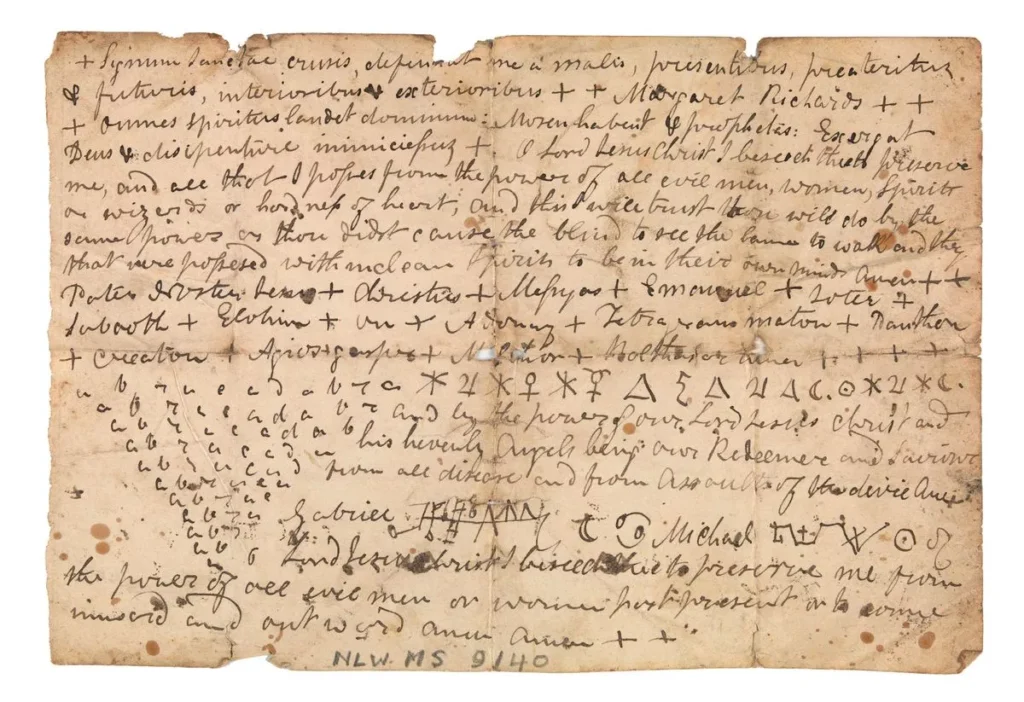 + Signum Sanctae crusis, defendat me a malis, presentibus, preateritus
& futuris, interioribus & exterioribus + + Margaret Richards + +
+ omnes spiritus landet dominum: Mosen habent & prophetas: Exergat
Deus & disipenture inimiciesuz + O Lord Jesus Christ I beseech thee to preserve
me, and all that I posses from the power of all evil men, women, spirits
or wizerds or hardness of heart, and this will trust thou will do by the
same power as thou didst cause the blind to see the lame to walk and they
that were possesed with unclean spirits to be in their own minds Amen + +
Pater Noster Jesus + Christus + Messyas + Emanuel + Soter +
Sabaoth + Elohim + on + Adonay + Tetragrammaton +
+ Creaton + Agios + + + Balthasar amen + + + +
a b r a c a d a b r a ♃ ♀ △ △ ♃ △ ☾ ☉ ♃ ☾
a b r a c a d a b r and by the power of our Lord Jesus Christ and
a b r a c a d a b
a b r a c a d a his hevenly Angels being our Redeemer and Saviour
a b r a c a d from all disease and from Assault of the devil Amen
a b r a c a
a b r a c
a b r a Gabriel ☾ ♋ Michael ☉
a b r
a b O Lord Jesus Christ I beseech thee to preserve me from
the power of all evil men or women past present or to come
inward and outward amen amen + +
NLW MS 9140